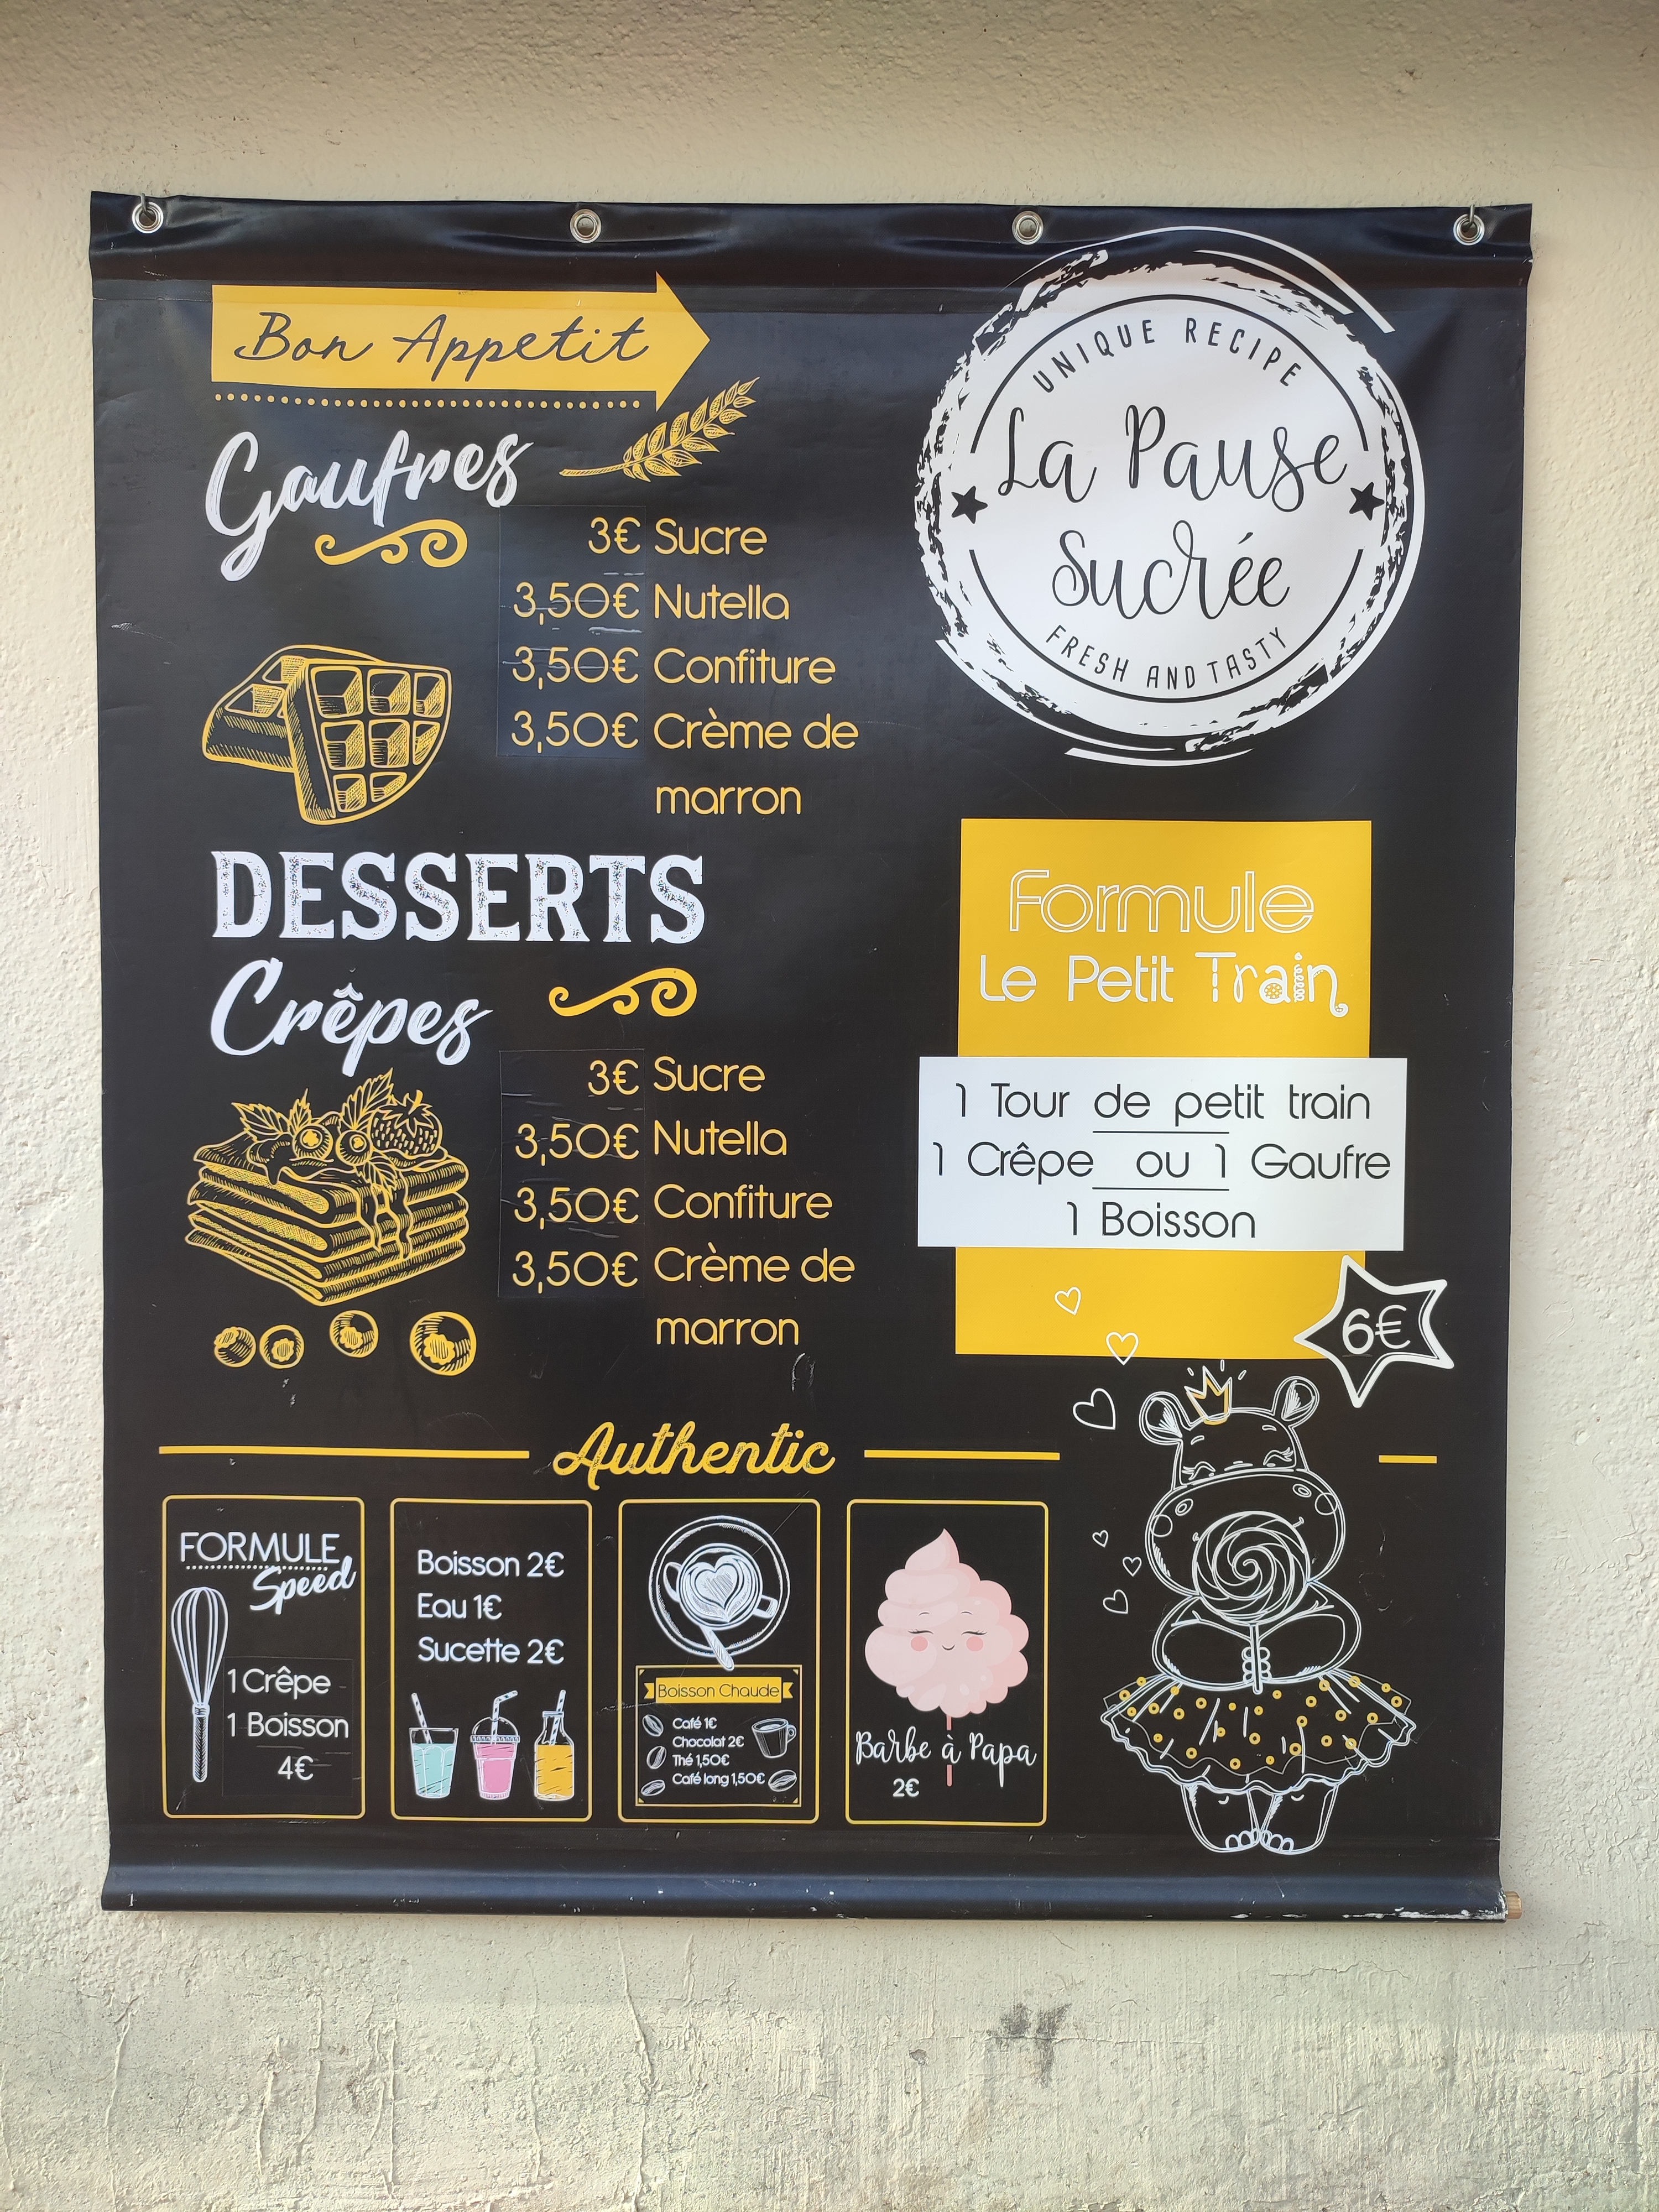 Bon Appetit
Gaufres
3€ Sucre
3,50€ Nutella
3,50€ Confiture
3,50€ Crème de
marron
DESSERTS
Crêpes
3€ Sucre
3,50€ Nutella
3,50€ Confiture
3,50€ Crème de
marron
UNIQUE RECIPE
La Pause
Sucrée
FRESH AND TASTY
Formule
Le Petit Train
1 Tour de petit train
1 Crêpe ou 1 Gaufre
1 Boisson
6€
Authentic
FORMULE
Speed
1 Crêpe
1 Boisson
4€
Boisson 2€
Eau 1€
Sucette 2€
Boisson Chaude
Café 1€
Chocolat 2€
Thé 1,50€
Café long 1,50€
Barbe à Papa
2€